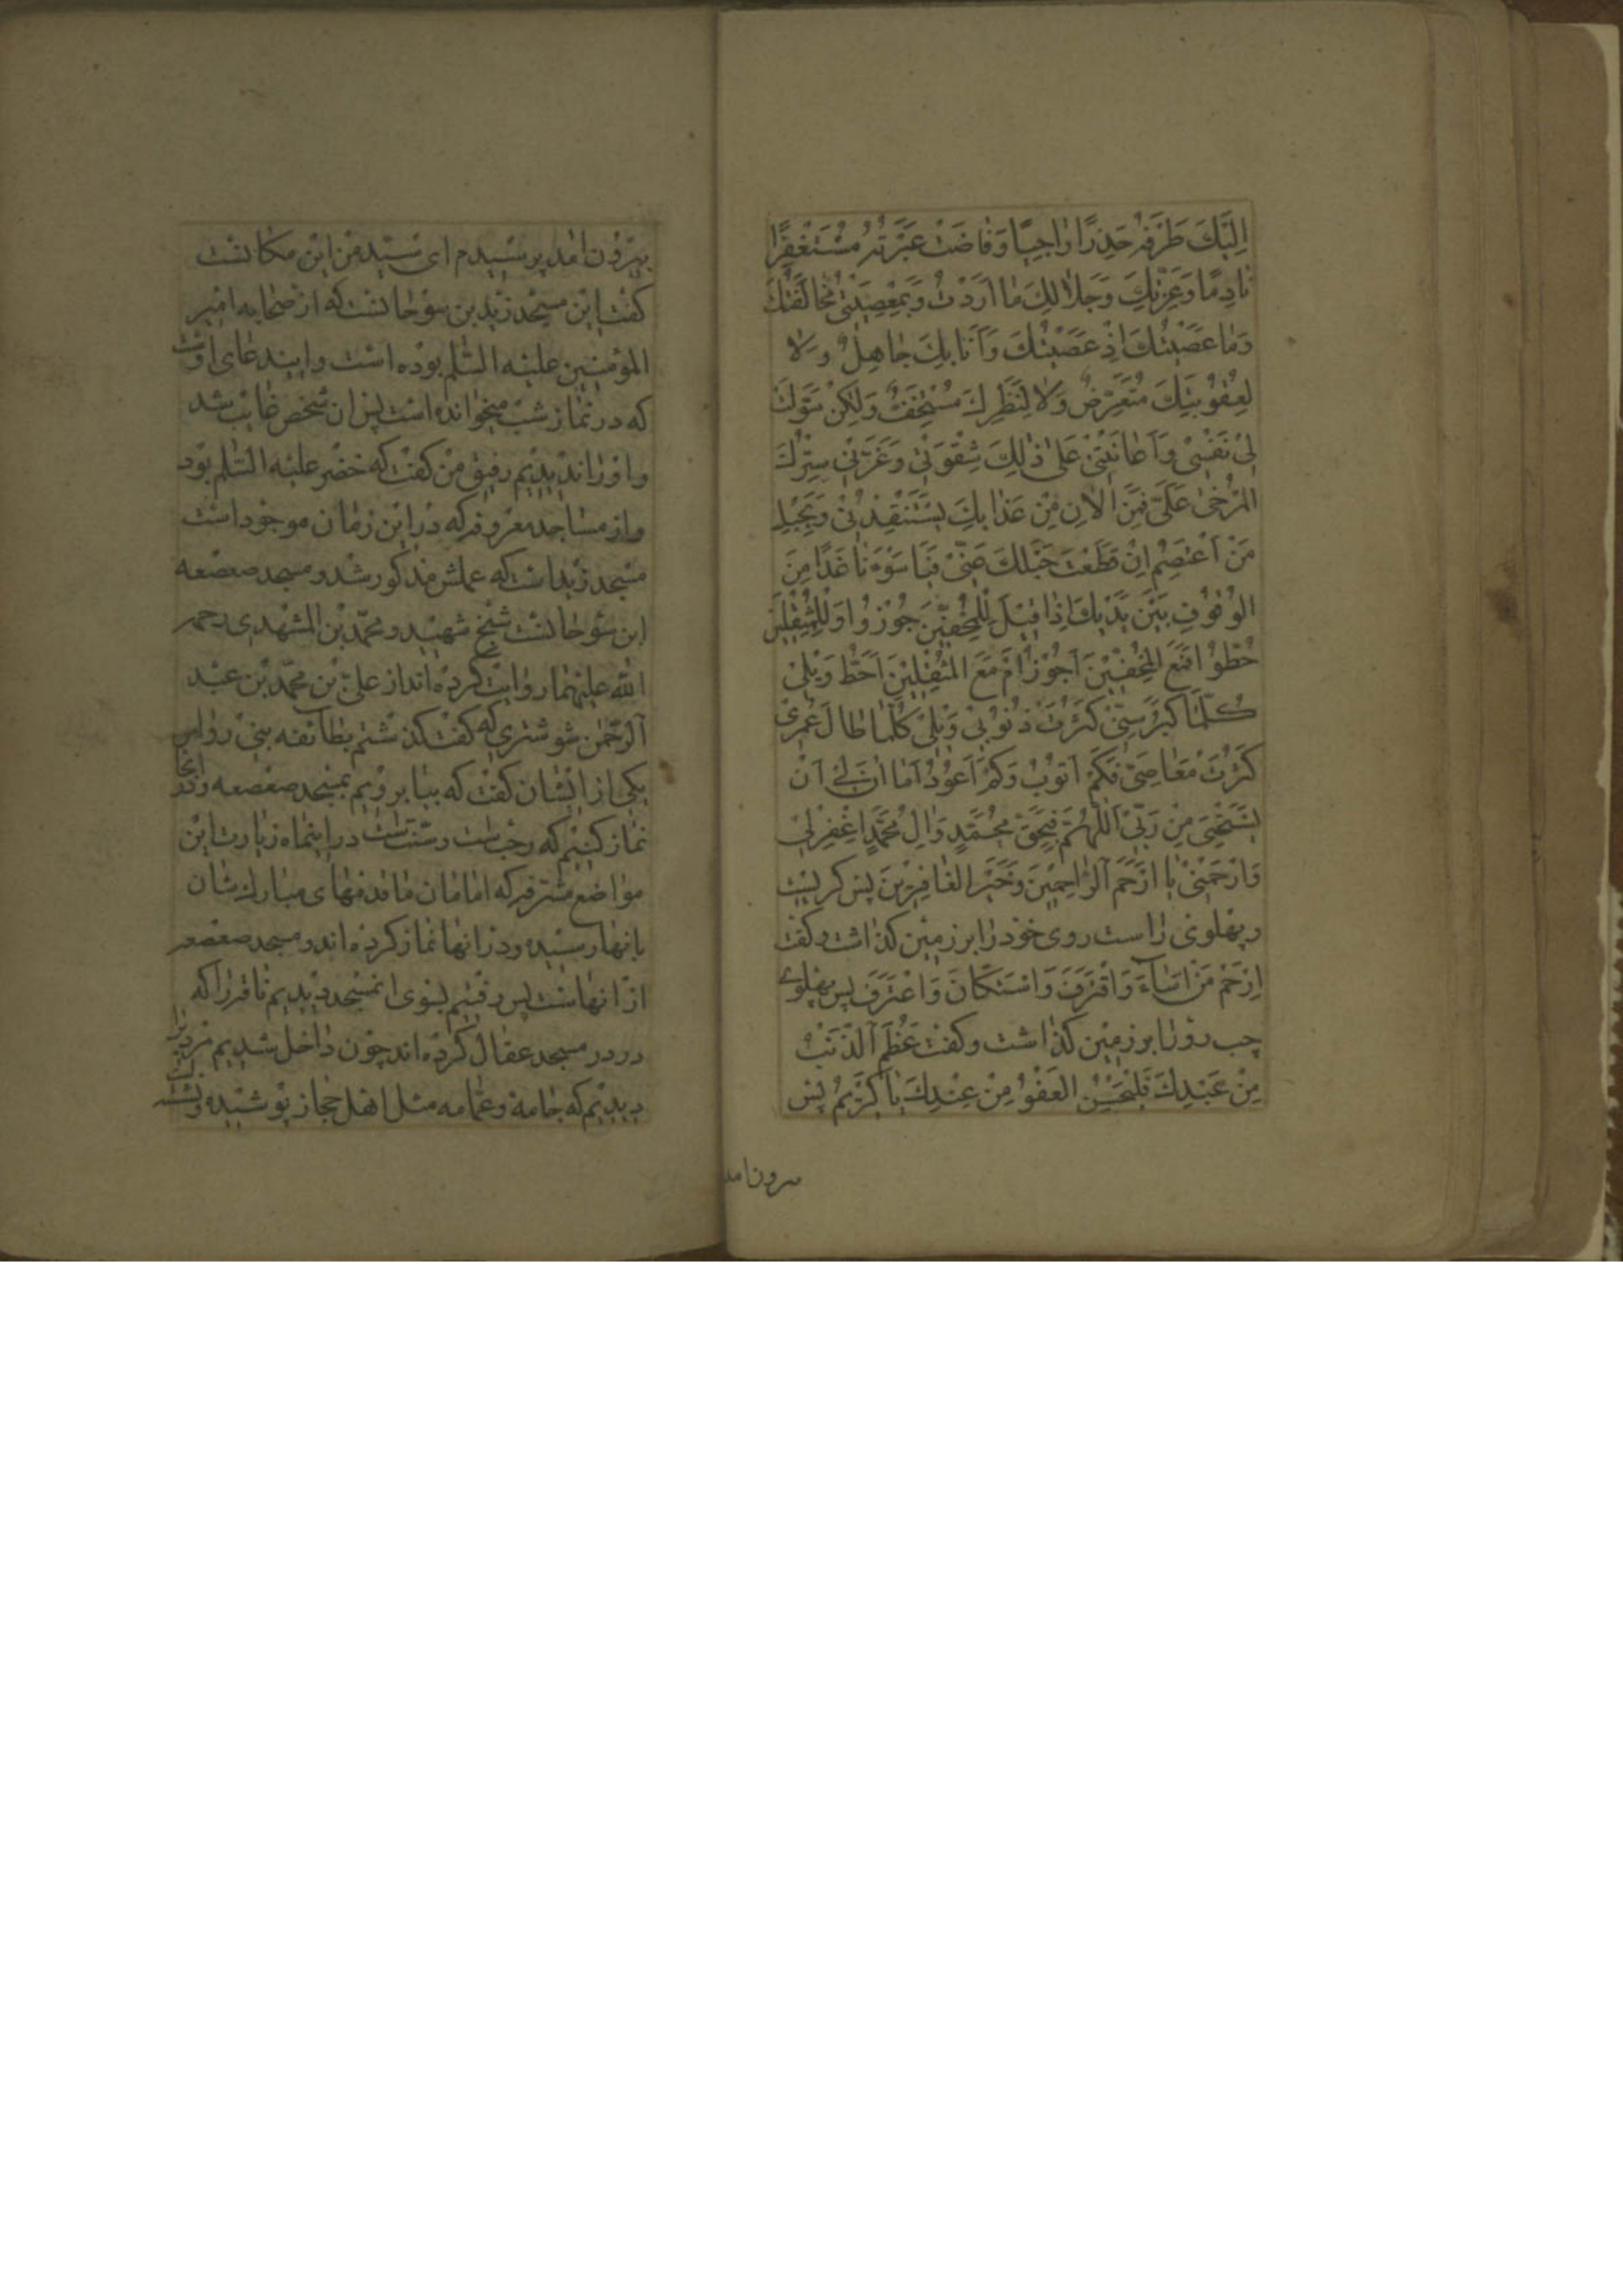 اِلَيْكَ طَرْفَهُ حَذِرًا رَاجِيًا وَفَاضَتْ عَبْرَتُهُ مُسْتَغْفِرًا
نَادِمًا وَعِزَّتِكَ وَجَلَالِكَ مَا اَرَدْتُ بِمَعْصِيَتِى مُخَالَفَتَكَ
وَمَا عَصَيْتُكَ اِذْ عَصَيْتُكَ وَاَنَا بِكَ جَاهِلٌ وَلَا
لِعُقُوبَتِكَ مُتَعَرِّضٌ وَلَا لِنَظَرِكَ مُسْتَخِفٌّ وَلٰكِنْ سَوَّلَتْ
لِى نَفْسِى وَاَعَانَتْنِى عَلَى ذٰلِكَ شِقْوَتِى وَغَرَّنِى سِتْرُكَ
الْمُرْخٰى عَلَىَّ فَمِنَ الْاٰنَ مِنْ عَذَابِكَ يَسْتَنْقِذُنِى وَبِحَبْلِ
مَنْ اَعْتَصِمُ اِنْ قَطَعْتَ حَبْلَكَ عَنِّى فَيَا سَوْءَتَا غَدًا مِنَ
الْوُقُوفِ بَيْنَ يَدَيْكَ اِذَا قِيلَ لِلْمُخِفِّينَ جُوزُوا وَلِلْمُثْقِلِينَ
حُطُّوا اَفَمَعَ الْمُخِفِّينَ اَجُوزُ اَمْ مَعَ الْمُثْقِلِينَ اَحُطُّ وَيْلِى
كُلَّمَا كَبُرَ سِنِّى كَثُرَتْ ذُنُوبِى وَيْلِى كُلَّمَا طَالَ عُمْرِى
كَثُرَتْ مَعَاصِىَّ فَكَمْ اَتُوبُ وَكَمْ اَعُودُ اَمَا اٰنَ لِى اَنْ
اَسْتَحْيِىَ مِنْ رَبِّى اَللّٰهُمَّ فَبِحَقِّ مُحَمَّدٍ وَاٰلِ مُحَمَّدٍ اِغْفِرْلِى
وَارْحَمْنِى يَا اَرْحَمَ الرَّاحِمِينَ وَخَيْرَ الْغَافِرِينَ پس کریست
و پهلوی راست روی خود را بر زمین کذاشت و کفت
اِرْحَمْ مَنْ اَسَاءَ وَاقْتَرَفَ وَاسْتَكَانَ وَاعْتَرَفَ پس پهلوی
چب رو را بر زمین کذاشت و کفت عَظُمَ الذَّنْبُ
مِنْ عَبْدِكَ فَلْيَحْسُنِ الْعَفْوُ مِنْ عِنْدِكَ يَا كَرِيمُ پس
برون امد
بیرون امد پرسیدم ای سید من این مکانست
کفت این مسجد زید بن سوحانست که از صحابه امیر
المؤمنین علیه السلم بوده است و ایندعای اوست
که در نماز شب میخوانده است پس ان شخص غایب شد
و او را ندیدیم رفیق من کفت که خضر علیه السلم بود
و از مساجد معروفه که در این زمان موجود است
مسجد زید است که عملش مذکور شد و مسجد صعصعه
ابن سوحانست شیخ شهید و محمد بن المشهدی رحمه
الله علیهما روایت کرده اند از علی بن محمد بن عبد
الرحمن شوشتری که کفت کذشتم بطائفه بنی رواس
یکی از ایشان کفت که بیا برویم بمسجد صعصعه و در انجا
نماز کنیم که رجب است و سنت است در اینماه زیارت این
مواضع مشرفه که امامان ما قدمهای مبارکشان
بانها رسیده و در انها نماز کرده اند و مسجد صعصعه
از انهاست پس رفتیم بسوی انمسجد دیدیم ناقه را که
در در مسجد عقال کرده اند چون داخل شدیم مردیرا
دیدیم که جامه و عمامه مثل اهل حجاز پوشیده و نشسته